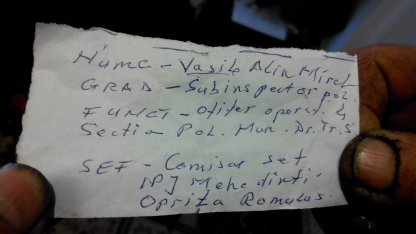 NUME - Vasile Alin Mirel
GRAD - Subinspector pol.
FUNCT - Ofiter operat. 4
Sectia Pol. Mun. Dr. Tr. S
SEF - Comisar sef
IPJ Mehedinti.
Oprița Romulus.